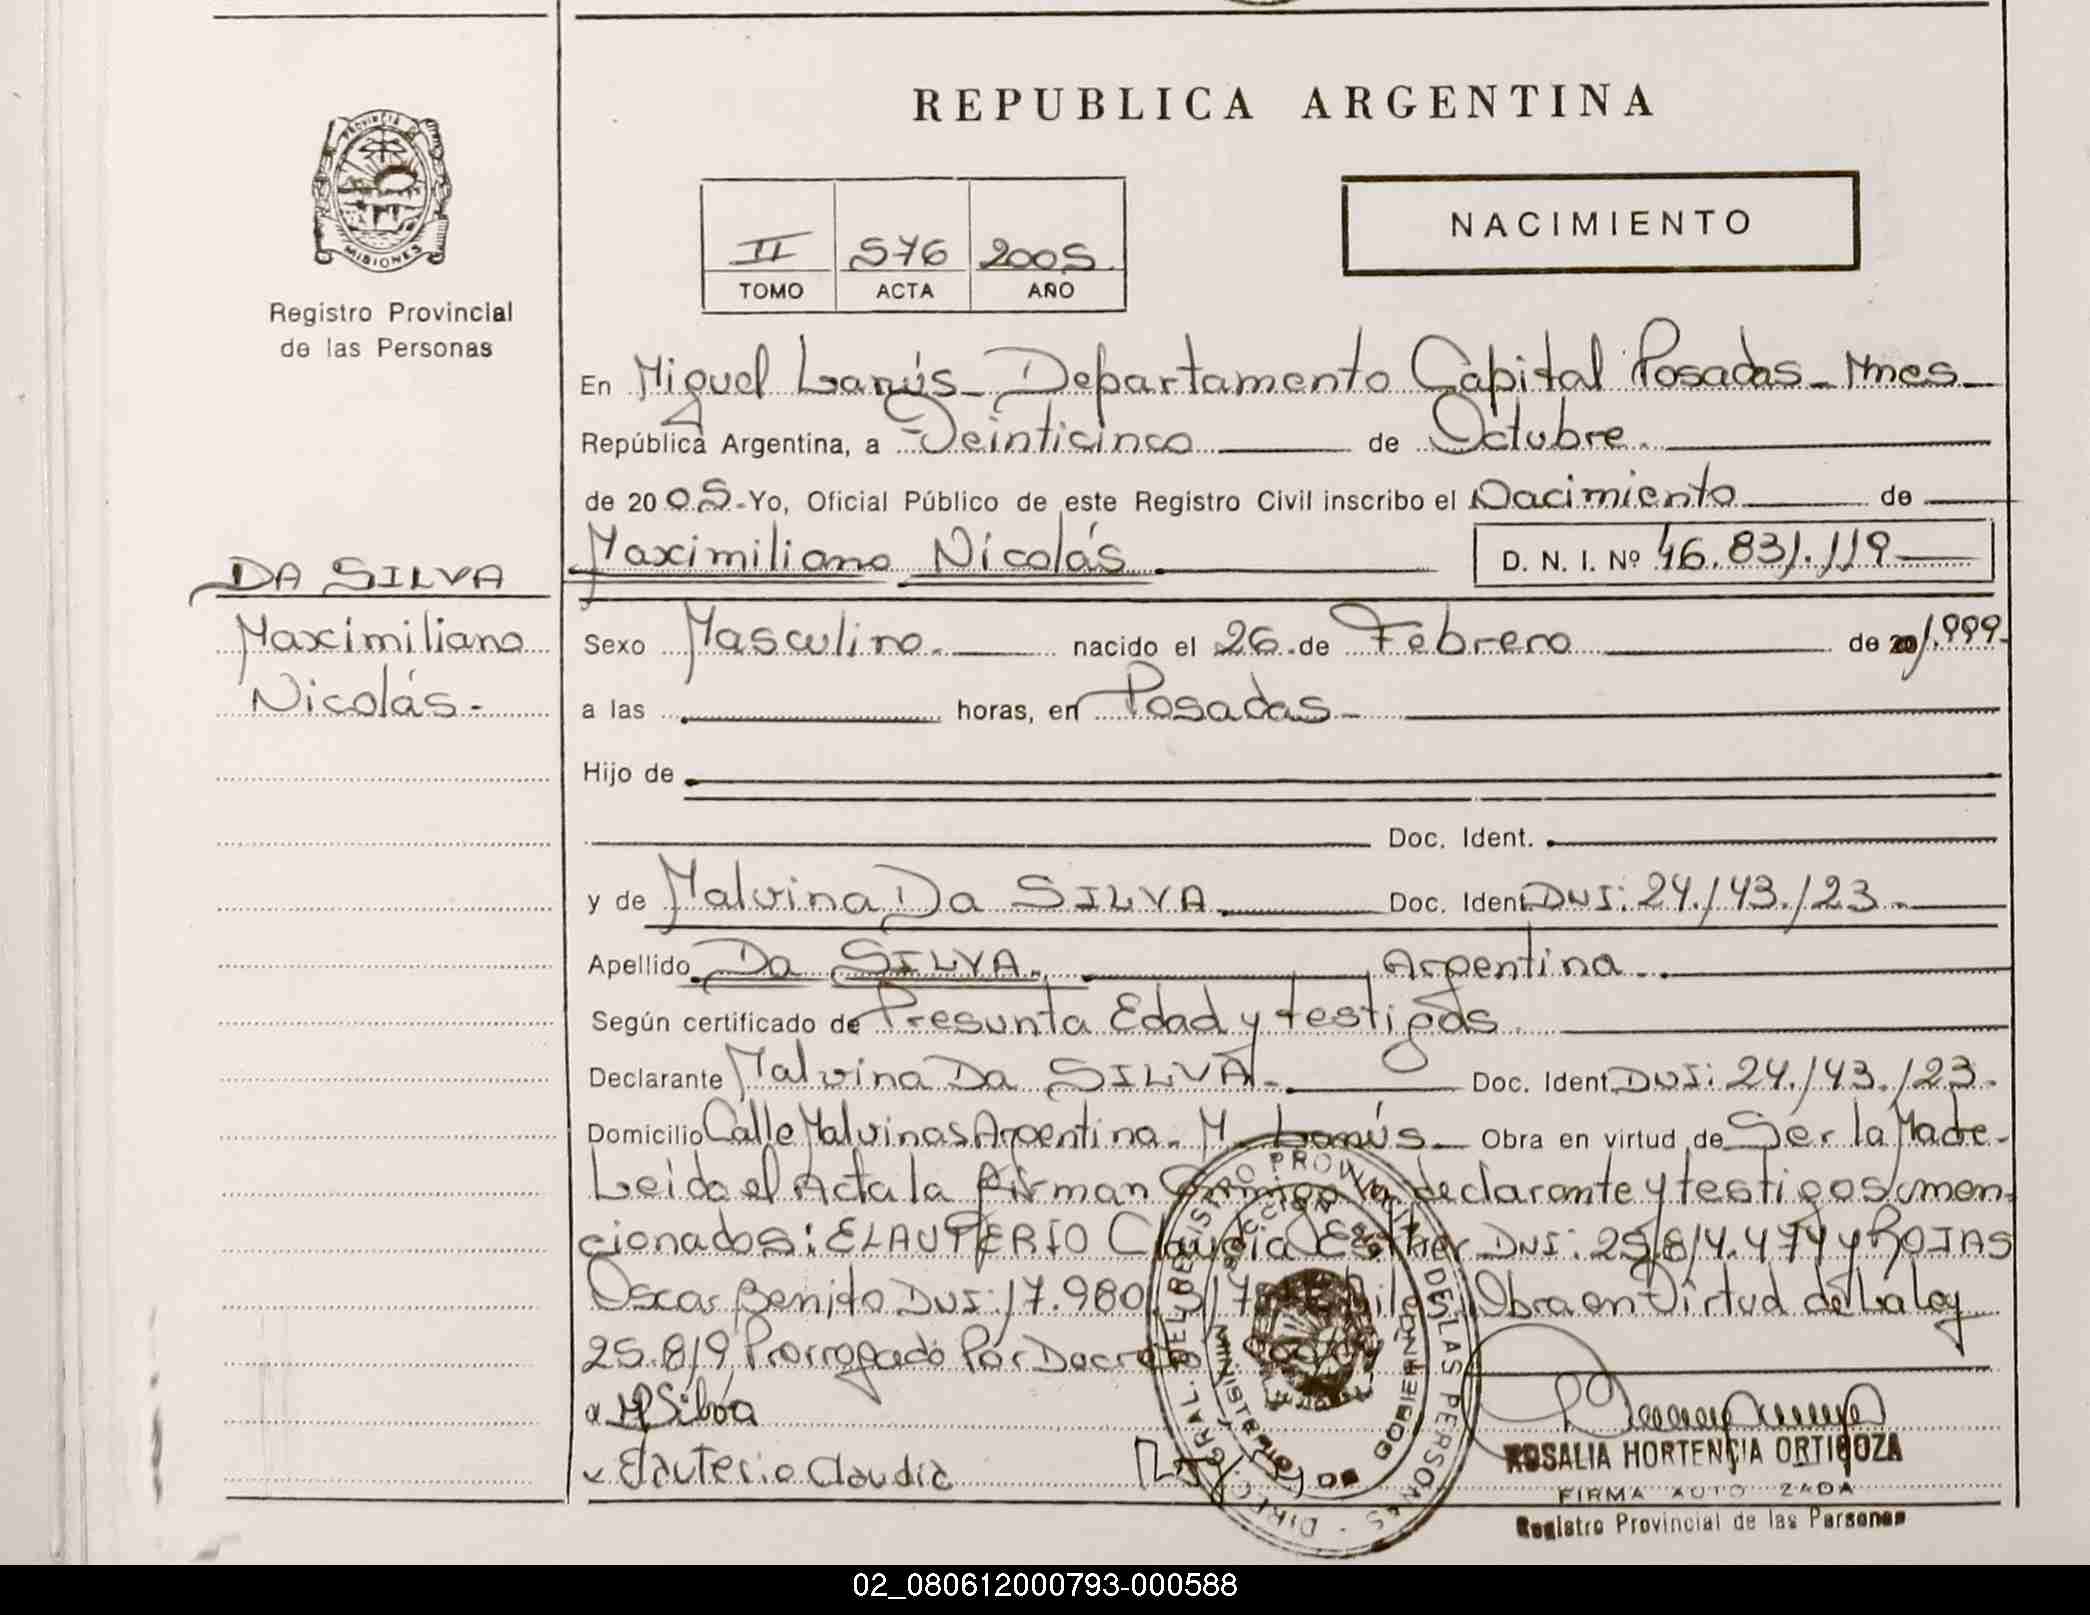 REPUBLICA ARGENTINA
PROVINCIA DE
MISIONES
Registro Provincial
de las Personas
NACIMIENTO
II 576 2005
TOMO ACTA AÑO
En Miguel Lanús - Departamento Capital Posadas - Mnes -
República Argentina, a Veinticinco de Octubre.
de 2005.- Yo, Oficial Público de este Registro Civil inscribo el Nacimiento de
Maximiliano Nicolás D. N. I. Nº 46.831.119
DA SILVA
Maximiliano
Nicolás.-
Sexo Masculino. nacido el 26 de Febrero de 20/1.999-
a las horas, en Posadas -
Hijo de
Doc. Ident.
y de Malvina Da SILVA Doc. Ident DNI: 24.143.123.-
Apellido Da SILVA. Argentina.
Según certificado de Presunta Edad y testigos
Declarante Malvina Da SILVA.- Doc. Ident DNI: 24.143.123.-
Domicilio Calle Malvinas Argentina. M. Lanús - Obra en virtud de Ser la Madre-
Leida el Acta la firman conmigo la declarante y testigos men-
cionados: ELAUTERIO Claudia Esther DNI: 25.814.474 y ROJAS
Oscar Benito DNI: 17.980. Obra en Virtud de la Ley
25.819 Prorrogado Por Decreto
M Silva
Elauterio Claudia
DIREC. GRAL. DEL REGISTRO PROVINCIAL DE LAS PERSONAS
MINISTERIO DE GOBIERNO
ROSALIA HORTENCIA ORTIGOZA
FIRMA AUTO ZADA
Registro Provincial de las Personas
02_080612000793-000588